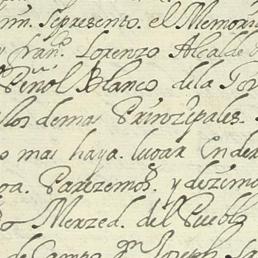 se presento. el Memori
y fran.co Lorenzo Alcalde
Peñol Blanco de la Jo
los demas Prinzipales.
o mas haya. lugar En de
oa. Parezemos. y dezimo
Merzed. del Pueblo
de Campo g.n Joseph Sa